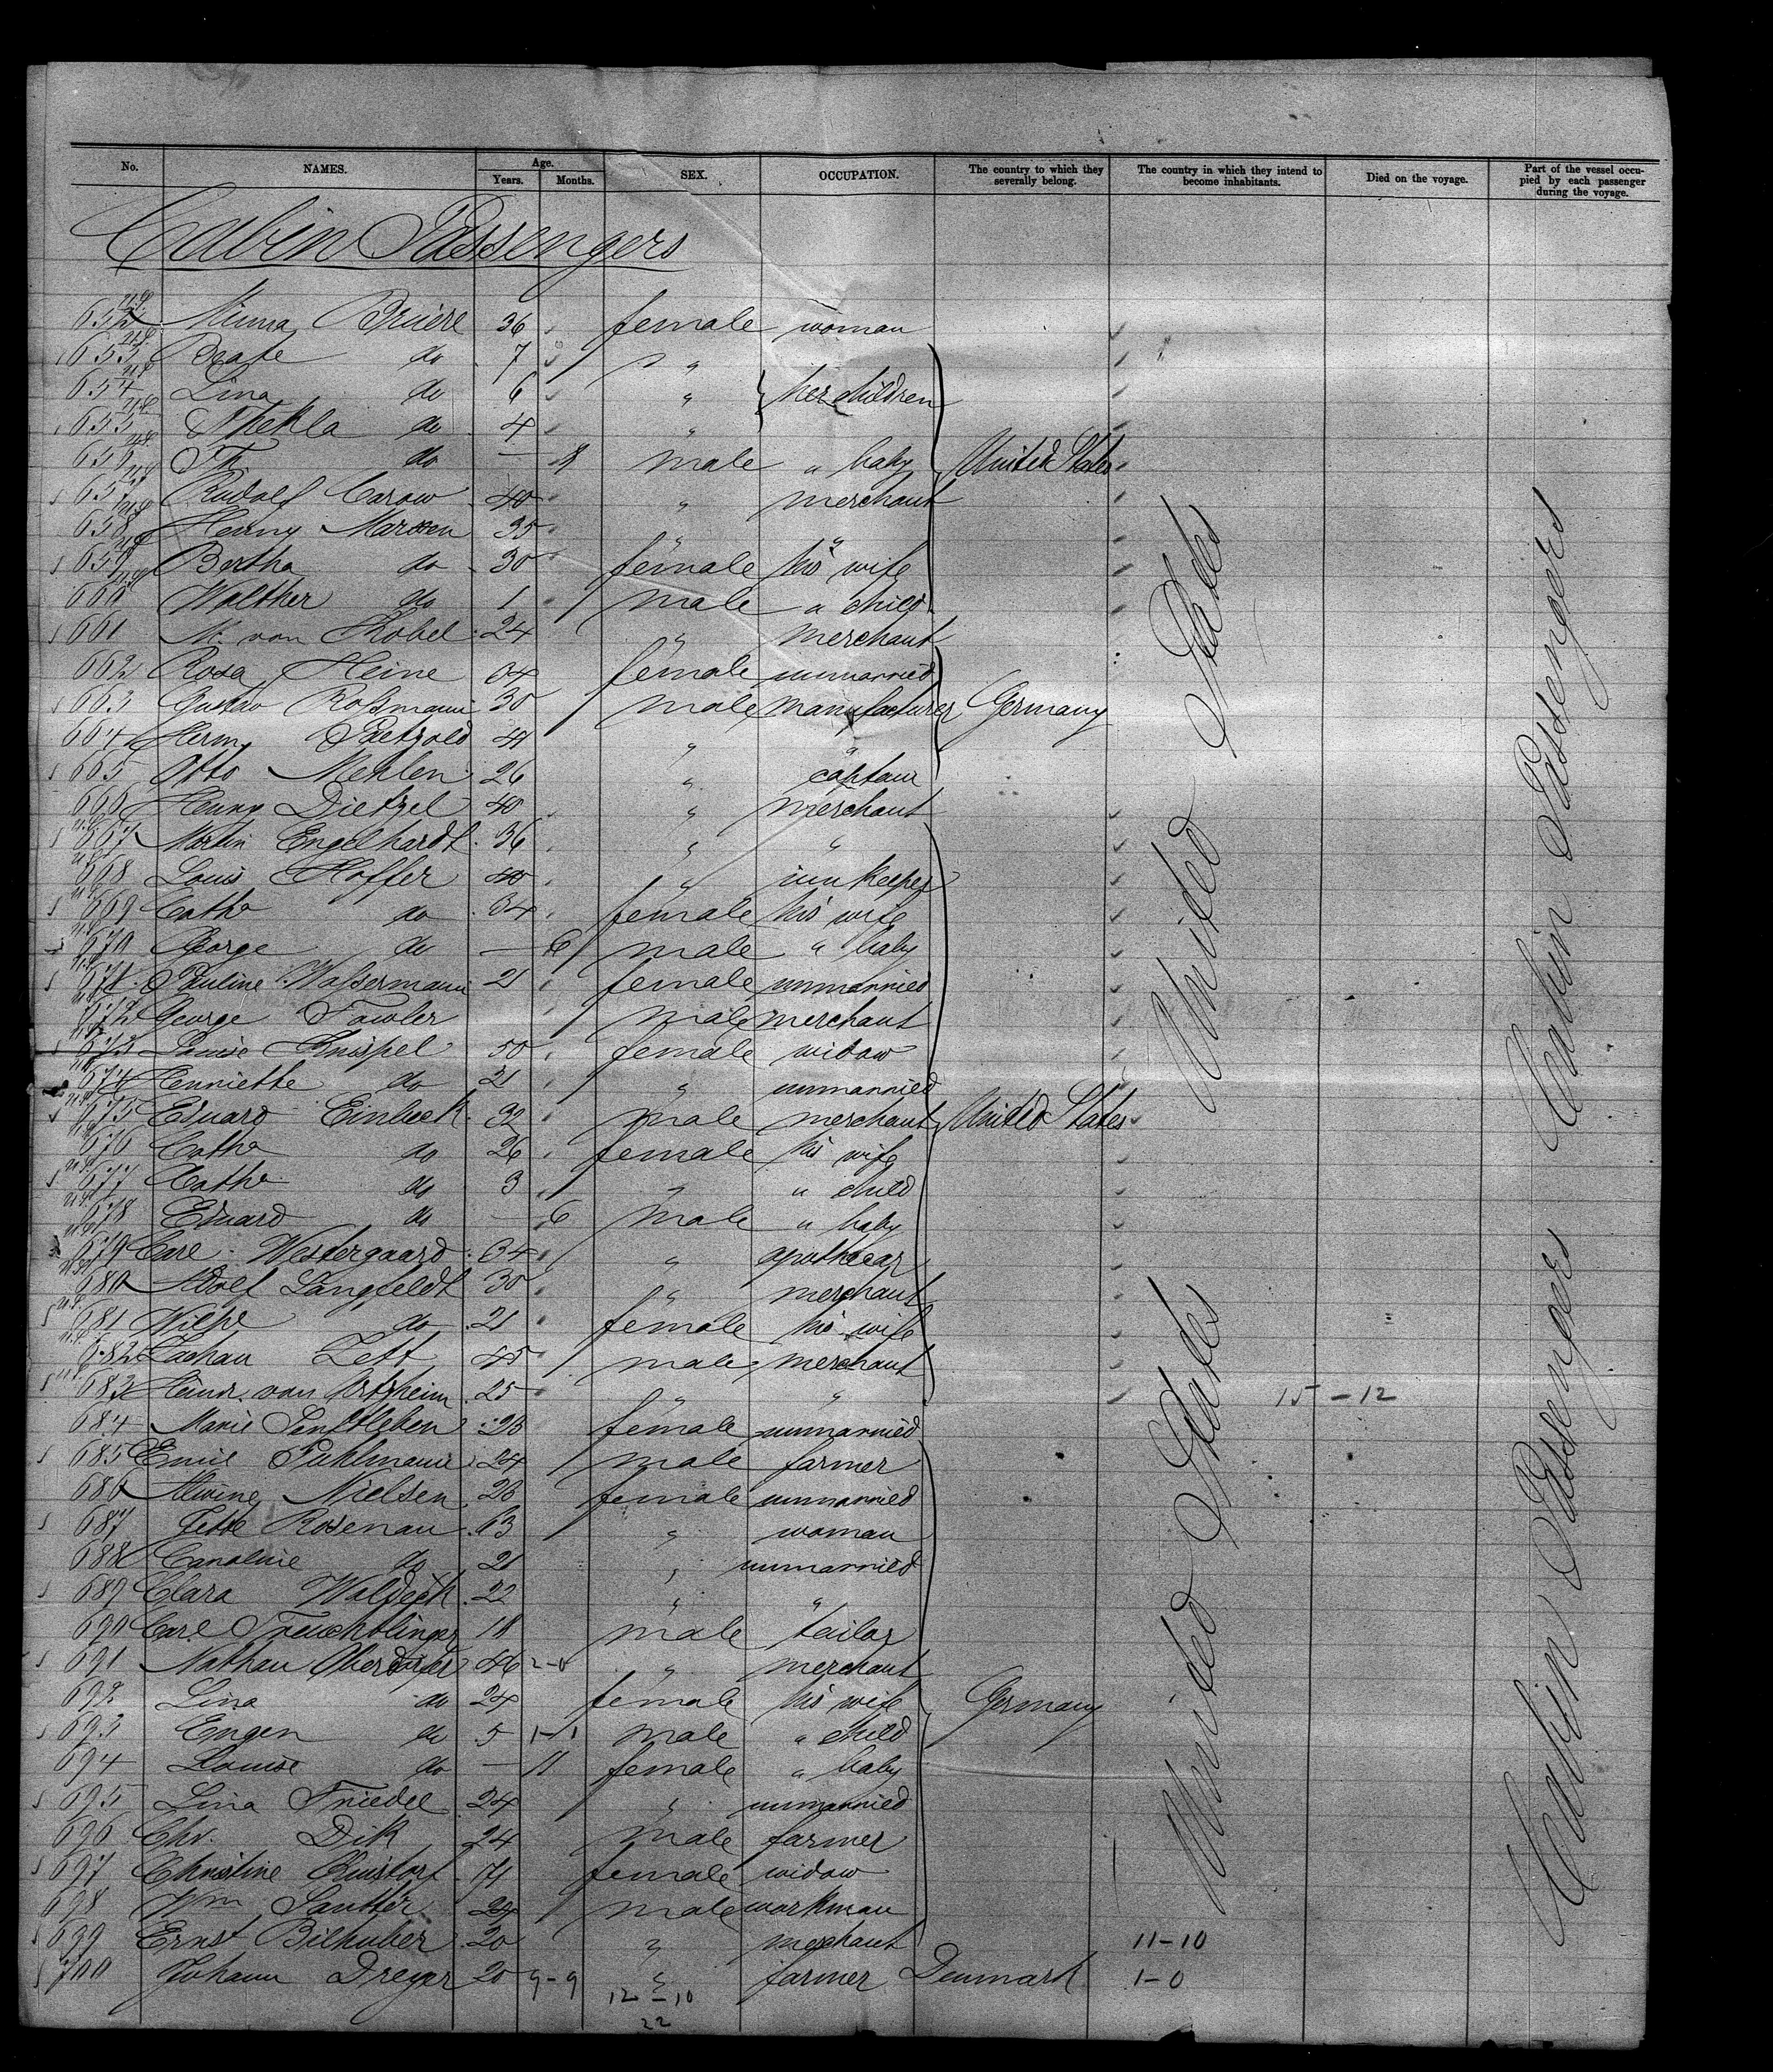 No. NAMES. Age. Years. Months. SEX. OCCUPATION. The country to which they severally belong. The country in which they intend to become inhabitants. Died on the voyage. Part of the vessel occupied by each passenger during the voyage.
Cabin Passengers
652 Minna Brüere 36 female woman
653 Beate do 7 " "
654 Lina do 6 " her children
655 Thekla do 4 "
656 do — male " baby United States
657 Rudolf Carow 40 " merchant
658 Henny Marxsen 35 " "
659 Bertha do 30 female his wife
660 Walther do 1 male " child
661 M. von Kobel 24 " merchant
662 Rosa Heine female unmarried
663 Gustav Roßmann 30 male manufacturer Germany
664 Herm. Paetzold " "
665 Otto Mehlen 26 " captain
666 Henny Dietzel 40 " merchant
667 Martin Engelhardt 36 " "
668 Louis Hoffer 40 " inn keeper
669 Catha do 34 female his wife
670 George do — 6 male " baby
671 Pauline Waßermann 21 female unmarried
672 George Fowler male merchant
673 Louise Knispel 50 female widow
674 Henriette do 21 " unmarried
675 Eduard Einbeck 32 male merchant United States
676 Catha do 26 female his wife
677 Catha do 3 " " child
678 Eduard do — 6 male " baby
679 Carl Westergaard 34 " apothecar
680 Adolf Langfeldt 30 " merchant
681 Wilhe do 21 female his wife
682 Zachau Zett 45 male merchant
683 von 25 " " 15-12
684 Marie Senftleben 28 female unmarried
685 Emil Puhlmann 24 male farmer
686 Alwine Nielsen 28 female unmarried
687 Jette Rosenau 63 " woman
688 Caroline do 21 " unmarried
689 Clara Waldeck 22 " "
690 Carl Treuchtlinger 18 male tailor
691 Nathan Oberdorfer 46 2-0 " merchant
692 Lina do 24 female his wife Germany
693 Eugen do 5 1-1 male " child
694 Louise do — 11 female " baby
695 Lina Friedel 24 " unmarried
696 Chr. Dik 24 male farmer
697 Christine female widow
698 Wm Sautter 24 male workman
699 Ernst Bilhuber 20 " merchant 11-10
700 Johann Dreyer 20 9-9 " farmer Denmark 1-0
12-10
22
United States
United States
Cabin Passengers
Cabin Passengers